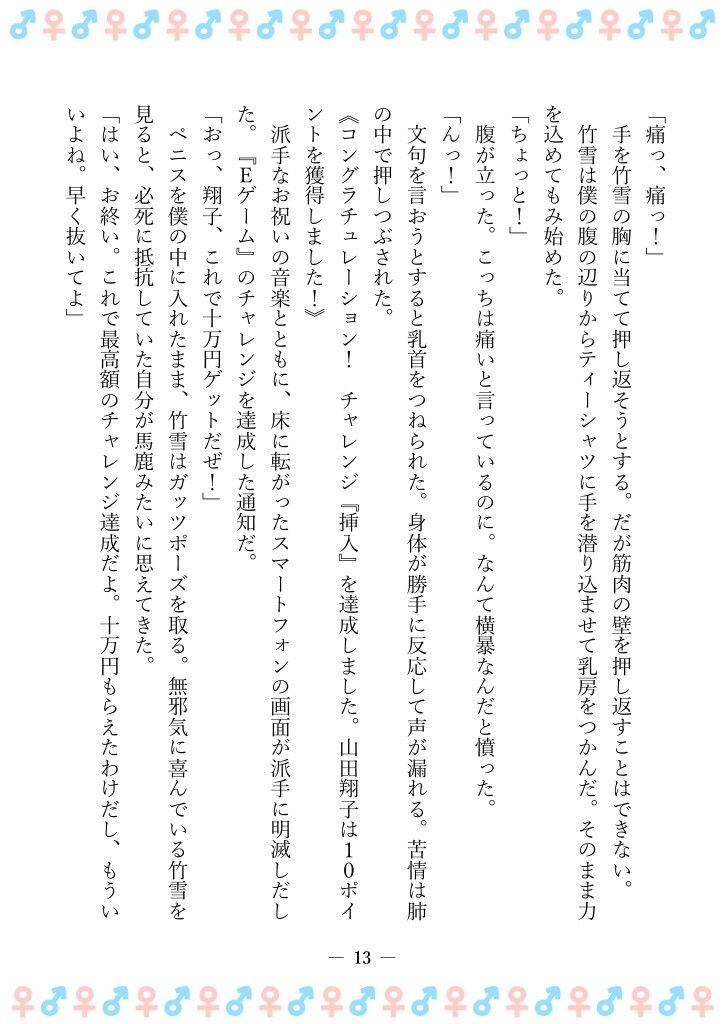 「痛っ、痛っ！」
手を竹雪の胸に当てて押し返そうとする。だが筋肉の壁を押し返すことはできない。
竹雪は僕の腹の辺りからティーシャツに手を潜り込ませて乳房をつかんだ。そのまま力
を込めてもみ始めた。
「ちょっと！」
腹が立った。こっちは痛いと言っているのに。なんて横暴なんだと憤った。
「んっ！」
文句を言おうとすると乳首をつねられた。身体が勝手に反応して声が漏れる。苦情は肺
の中で押しつぶされた。
《コングラチュレーション！　チャレンジ『挿入』を達成しました。山田翔子は１０ポイ
ントを獲得しました！》
派手なお祝いの音楽とともに、床に転がったスマートフォンの画面が派手に明滅しだし
た。『Ｅゲーム』のチャレンジを達成した通知だ。
「おっ、翔子、これで十万円ゲットだぜ！」
ペニスを僕の中に入れたまま、竹雪はガッツポーズを取る。無邪気に喜んでいる竹雪を
見ると、必死に抵抗していた自分が馬鹿みたいに思えてきた。
「はい、お終い。これで最高額のチャレンジ達成だよ。十万円もらえたわけだし、もうい
いよね。早く抜いてよ」
— 13 —